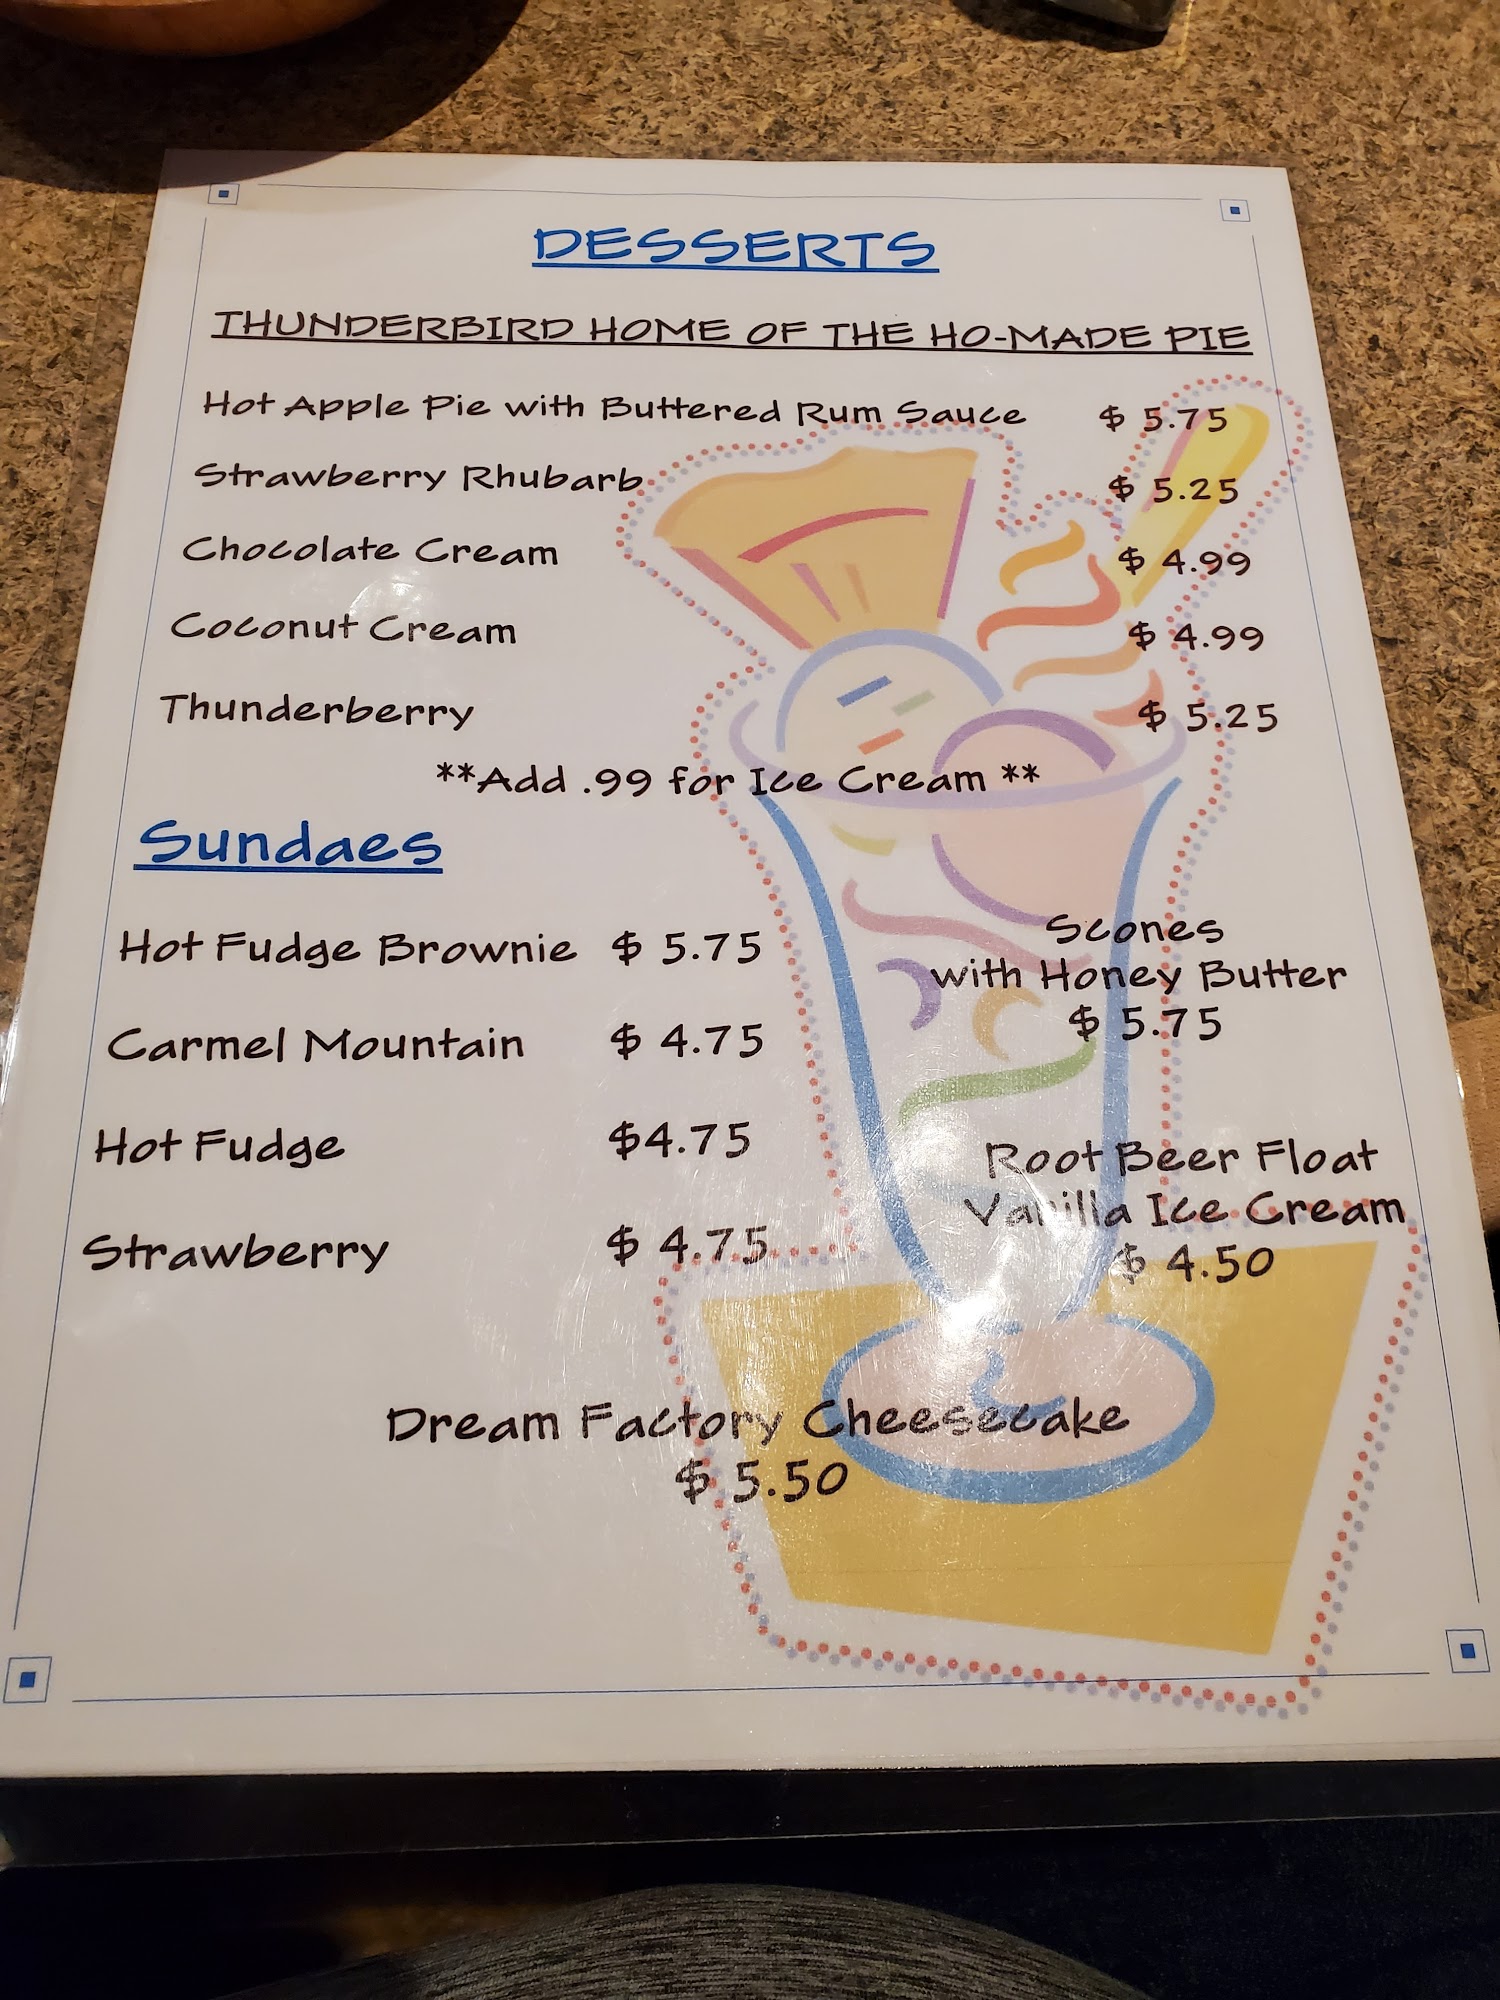 DESSERTS
THUNDERBIRD HOME OF THE HO-MADE PIE
Hot Apple Pie with Buttered Rum Sauce $ 5.75
Strawberry Rhubarb $ 5.25
Chocolate Cream $ 4.99
Coconut Cream $ 4.99
Thunderberry $ 5.25
**Add .99 for Ice Cream **
Sundaes
Hot Fudge Brownie $ 5.75
Carmel Mountain $ 4.75
Hot Fudge $4.75
Strawberry $ 4.75
Scones
with Honey Butter
$ 5.75
Root Beer Float
Vanilla Ice Cream
$ 4.50
Dream Factory Cheesecake
$ 5.50